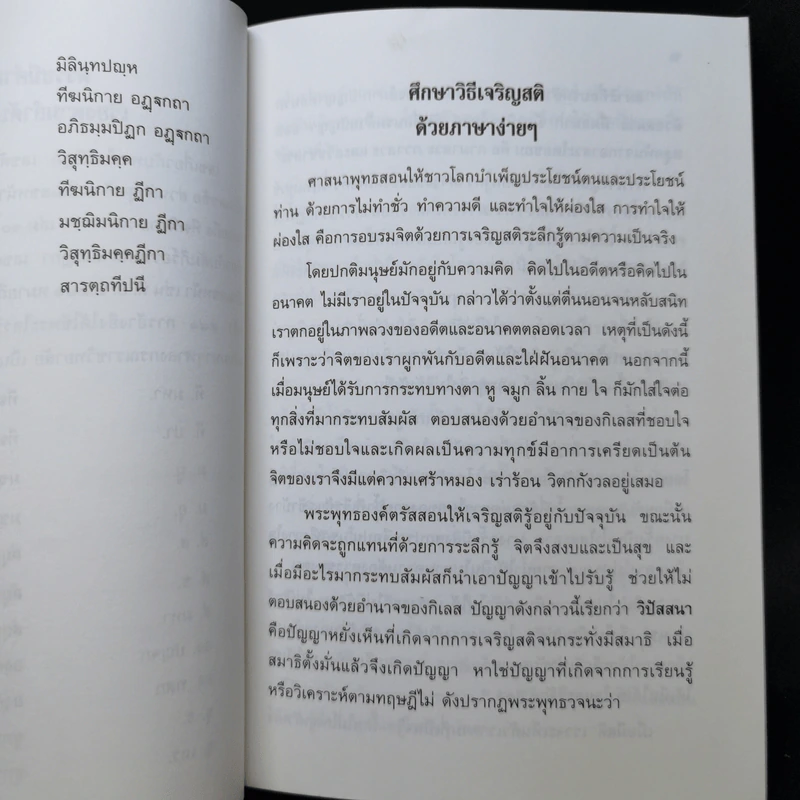 มิลินฺทปญฺห
ทีฆนิกาย อฏฺฐกถา
อภิธมฺมปิฏก อฏฺฐกถา
วิสุทฺธิมคฺค
ทีฆนิกาย ฏีกา
มชฺฌิมนิกาย ฏีกา
วิสุทฺธิมคฺคฏีกา
สารตฺถทีปนี
ศึกษาวิธีเจริญสติ
ด้วยภาษาง่ายๆ
ศาสนาพุทธสอนให้ชาวโลกบำเพ็ญประโยชน์ตนและประโยชน์
ท่าน ด้วยการไม่ทำชั่ว ทำความดี และทำใจให้ผ่องใส การทำใจให้
ผ่องใส คือการอบรมจิตด้วยการเจริญสติระลึกรู้ตามความเป็นจริง
โดยปกติมนุษย์มักอยู่กับความคิด คิดไปในอดีตหรือคิดไปใน
อนาคต ไม่มีเราอยู่ในปัจจุบัน กล่าวได้ว่าตั้งแต่ตื่นนอนจนหลับสนิท
เราตกอยู่ในภาพลวงของอดีตและอนาคตตลอดเวลา เหตุที่เป็นดังนี้
ก็เพราะว่าจิตของเราผูกพันกับอดีตและใฝ่ฝันอนาคต นอกจากนี้
เมื่อมนุษย์ได้รับการกระทบทางตา หู จมูก ลิ้น กาย ใจ ก็มักใส่ใจต่อ
ทุกสิ่งที่มากระทบสัมผัส ตอบสนองด้วยอำนาจของกิเลสที่ชอบใจ
หรือไม่ชอบใจและเกิดผลเป็นความทุกข์มีอาการเครียดเป็นต้น
จิตของเราจึงมีแต่ความเศร้าหมอง เร่าร้อน วิตกกังวลอยู่เสมอ
พระพุทธองค์ตรัสสอนให้เจริญสติรู้อยู่กับปัจจุบัน ขณะนั้น
ความคิดจะถูกแทนที่ด้วยการระลึกรู้ จิตจึงสงบและเป็นสุข และ
เมื่อมีอะไรมากระทบสัมผัสก็นำเอาปัญญาเข้าไปรับรู้ ช่วยให้ไม่
ตอบสนองด้วยอำนาจของกิเลส ปัญญาดังกล่าวนี้เรียกว่า วิปัสสนา
คือปัญญาหยั่งเห็นที่เกิดจากการเจริญสติจนกระทั่งมีสมาธิ เมื่อ
สมาธิตั้งมั่นแล้วจึงเกิดปัญญา หาใช่ปัญญาที่เกิดจากการเรียนรู้
หรือวิเคราะห์ตามทฤษฎีไม่ ดังปรากฏพระพุทธวจนะว่า